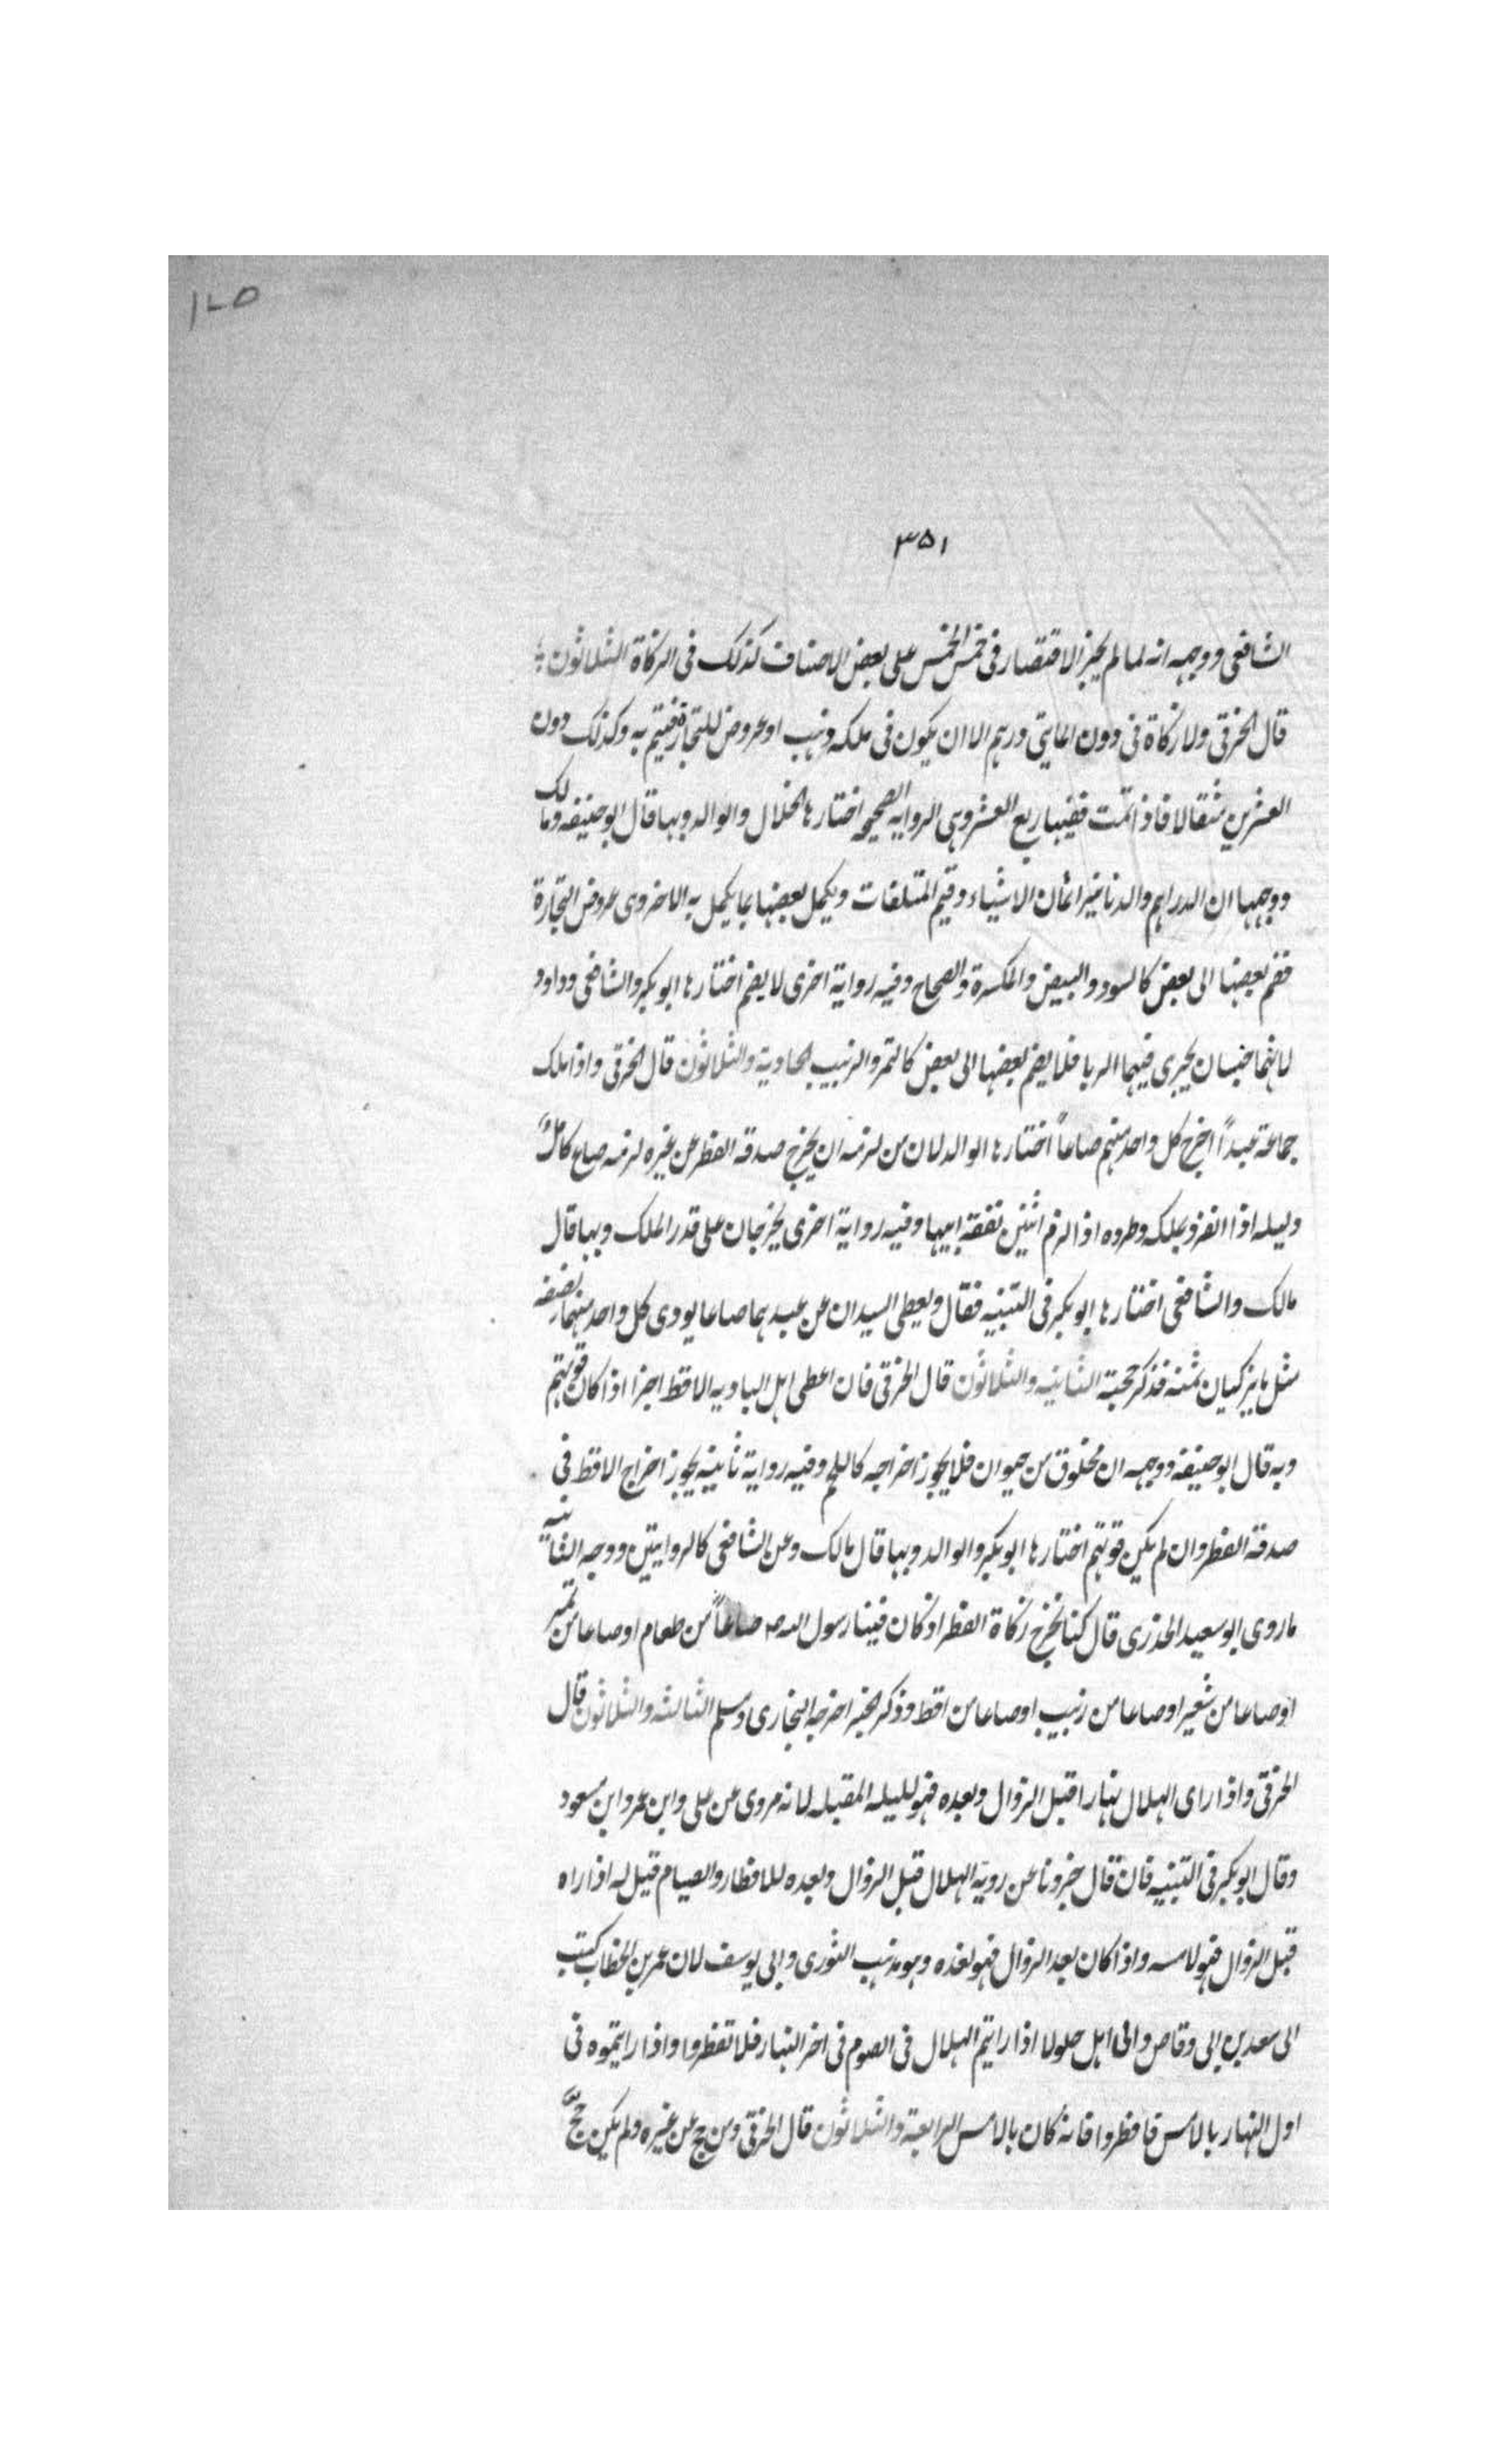 ١٧٥
٣٥١
الشافعى ووجهه انه لما لم يجز الاقتصار فى خمس الخمس على بعض الاصناف كذلك فى الزكاة الثلاثون
قال الخرقى ولا زكاة فى دون المايتى درهم الا ان يكون فى ملكه ذهب او عروض للتجارة فيتم به وكذلك دون
العشرين مثقالا فاذا تمت ففيها ربع العشر وهى الرواية الصحيحه اختارها الخلال والوالد وبها قال ابو حنيفه ومالك
ووجهها ان الدراهم والدنانير اثمان الاشياء وقيم المتلفات ويكمل بعضها بما يكمل به الاخر وى عروض التجارة
فضم بعضها الى بعض كالسود والبيض والمكسرة والصحاح وفيه رواية اخرى لا يضم اختارها ابوبكر والشافعى وداود
لانهما جنسان يجرى فيهما الربا فلا يضم بعضها الى بعض كالتمر والزبيب الحادية والثلاثون قال الخرقى واذا ملك
جماعة عبداً اخرج كل واحد منهم صاعاً اختارها الوالد لان من لزمه ان يخرج صدقه الفطر عن غيره لزمه صاع كامل
دليله اذا انفرد بملكه وطرده اذا لزم اثنين نفقة ابيها وفيه رواية اخرى يخرجان على قدر الملك وبها قال
مالك والشافعى اختارها ابوبكر فى التنبيه فقال ويعطى السيدان عن عبدهما صاعا يودى كل واحد منهما نصفه
مثل ما يزكيان ثمنه فذكر حجبة الثانيه والثلاثون قال الخرقى فان اعطى اهل الباديه الاقط اجزا اذا كان قوتهم
وبه قال ابو حنيفه ووجهه ان مخلوق من حيوان فلا يجوز اخراجه كاللحم وفيه رواية ثانيه يجوز اخراج الاقط فى
صدقه الفطر وان لم يكن قوتهم اختارها ابوبكر والوالد وبها قال مالك وعن الشافعى كالروايتين ووجه الثانيه
ما روى ابو سعيد الخدرى قال كنا نخرج زكاة الفطر اذ كان فينا رسول الله ص صاعاً من طعام او صاعا من تمر
او صاعا من شعير او صاعا من زبيب او صاعا من اقط وذكر الخبر اخرجه البخارى ومسلم الثالثه والثلاثون قال
الخرقى واذا راى الهلال نهارا قبل الزوال وبعده فهو لليله المقبله لانه مروى عن على وابن عمر وابن مسعود
وقال ابوبكر فى التنبيه فان قال خبرونا عن روية الهلال قبل الزوال وبعده للافطار والصيام قيل له اذا راه
قبل الزوال فهو لامسه واذا كان بعد الزوال فهو لغده وهو مذهب الثورى وابى يوسف لان عمر بن الخطاب كتب
الى سعد بن ابى وقاص والى اهل جلولا اذا رايتم الهلال فى الصوم فى اخر النهار فلا تفطروا واذا رايتموه فى
اول النهار بالامس فافطروا فانه كان بالامس الرابعة والثلاثون قال الخرقى ومن حج عن غيره ولم يكن حج